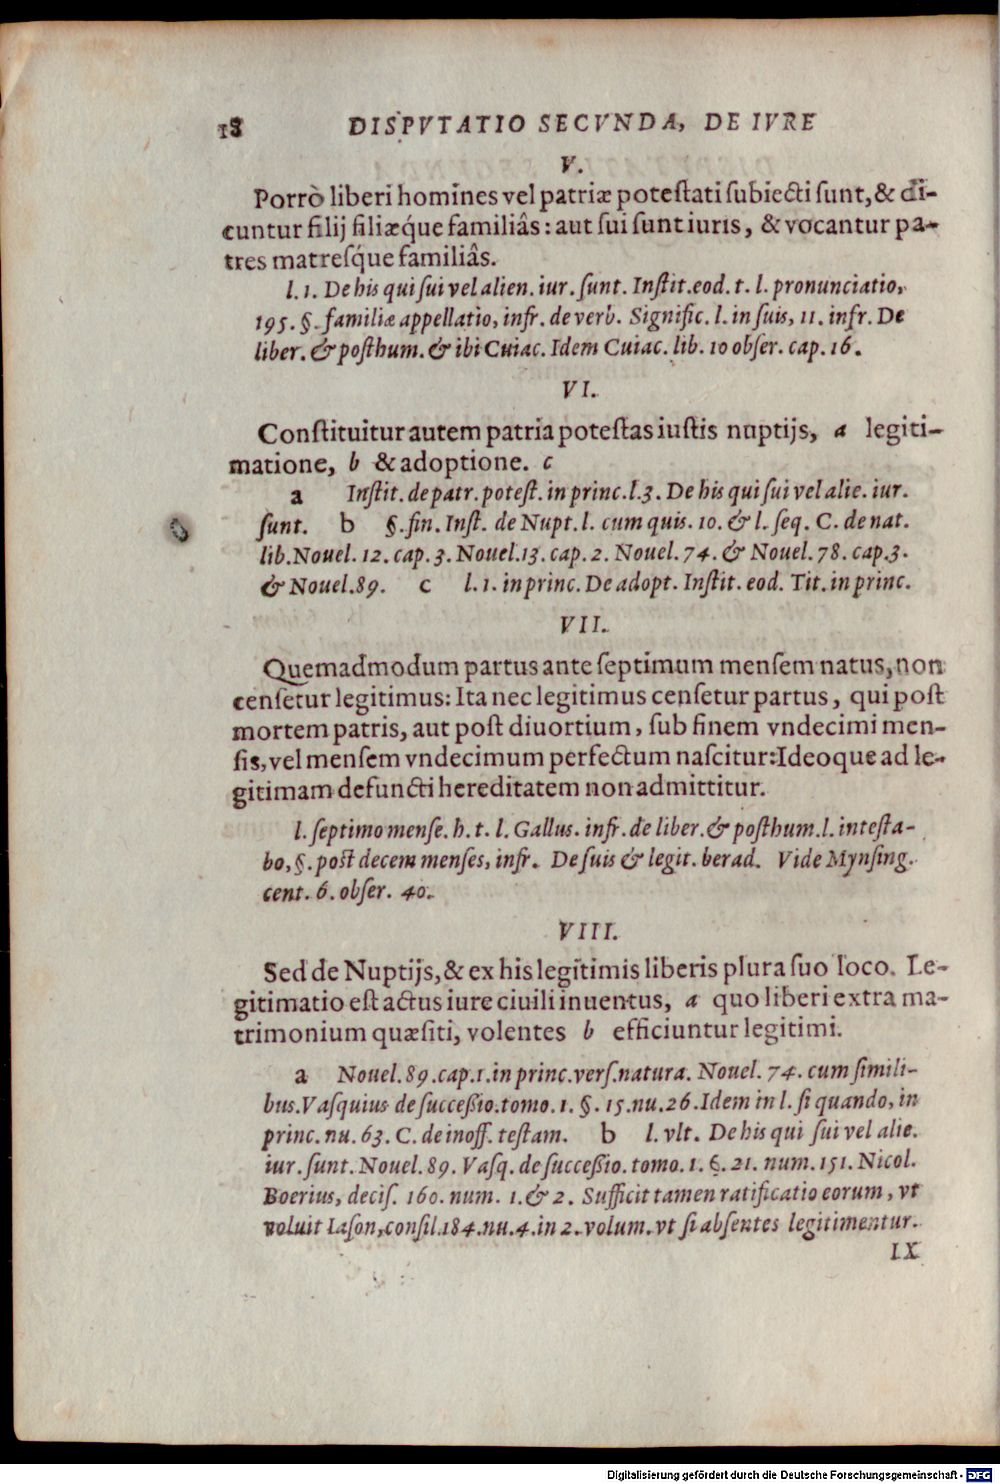 18 DISPVTATIO SECVNDA, DE IVRE
V.
Porrò liberi homines vel patriæ potestati subiecti sunt, & di-
cuntur filij filiæq́ue familiâs: aut sui sunt iuris, & vocantur pa-
tres matresq́ue familiâs.
l. 1. De his qui sui vel alien. iur. sunt. Instit. eod. t. l. pronunciatio,
195. §. familiæ appellatio, infr. de verb. Signific. l. in suis, 11. infr. De
liber. & posthum. & ibi Cuiac. Idem Cuiac. lib. 10 obser. cap. 16.
VI.
Constituitur autem patria potestas iustis nuptijs, a legiti-
matione, b & adoptione. c
a Instit. de patr. potest. in princ. l. 3. De his qui sui vel alie. iur.
sunt. b §. fin. Inst. de Nupt. l. cum quis. 10. & l. seq. C. de nat.
lib. Nouel. 12. cap. 3. Nouel. 13. cap. 2. Nouel. 74. & Nouel. 78. cap. 3.
& Nouel. 89. c l. 1. in princ. De adopt. Instit. eod. Tit. in princ.
VII.
Quemadmodum partus ante septimum mensem natus, non
censetur legitimus: Ita nec legitimus censetur partus, qui post
mortem patris, aut post diuortium, sub finem vndecimi men-
sis, vel mensem vndecimum perfectum nascitur: Ideoque ad le-
gitimam defuncti hereditatem non admittitur.
l. septimo mense. h. t. l. Gallus. infr. de liber. & posthum. l. intesta-
bo, §. post decem menses, infr. De suis & legit. herad. Vide Mynsing.
cent. 6. obser. 40.
VIII.
Sed de Nuptijs, & ex his legitimis liberis plura suo loco. Le-
gitimatio est actus iure ciuili inuentus, a quo liberi extra ma-
trimonium quæsiti, volentes b efficiuntur legitimi.
a Nouel. 89. cap. 1. in princ. vers. natura. Nouel. 74. cum simili-
bus. Vasquius de successio. tomo. 1. §. 15. nu. 26. Idem in l. si quando, in
princ. nu. 63. C. de inoff. testam. b l. vlt. De his qui sui vel alie.
iur. sunt. Nouel. 89. Vasq. de successio. tomo. 1. §. 21. num. 151. Nicol.
Boerius, decis. 160. num. 1. & 2. Sufficit tamen ratificatio eorum, vt
voluit Iason, consil. 184. nu. 4. in 2. volum. vt si absentes legitimentur.
IX
Digitalisierung gefördert durch die Deutsche Forschungsgemeinschaft - DFG